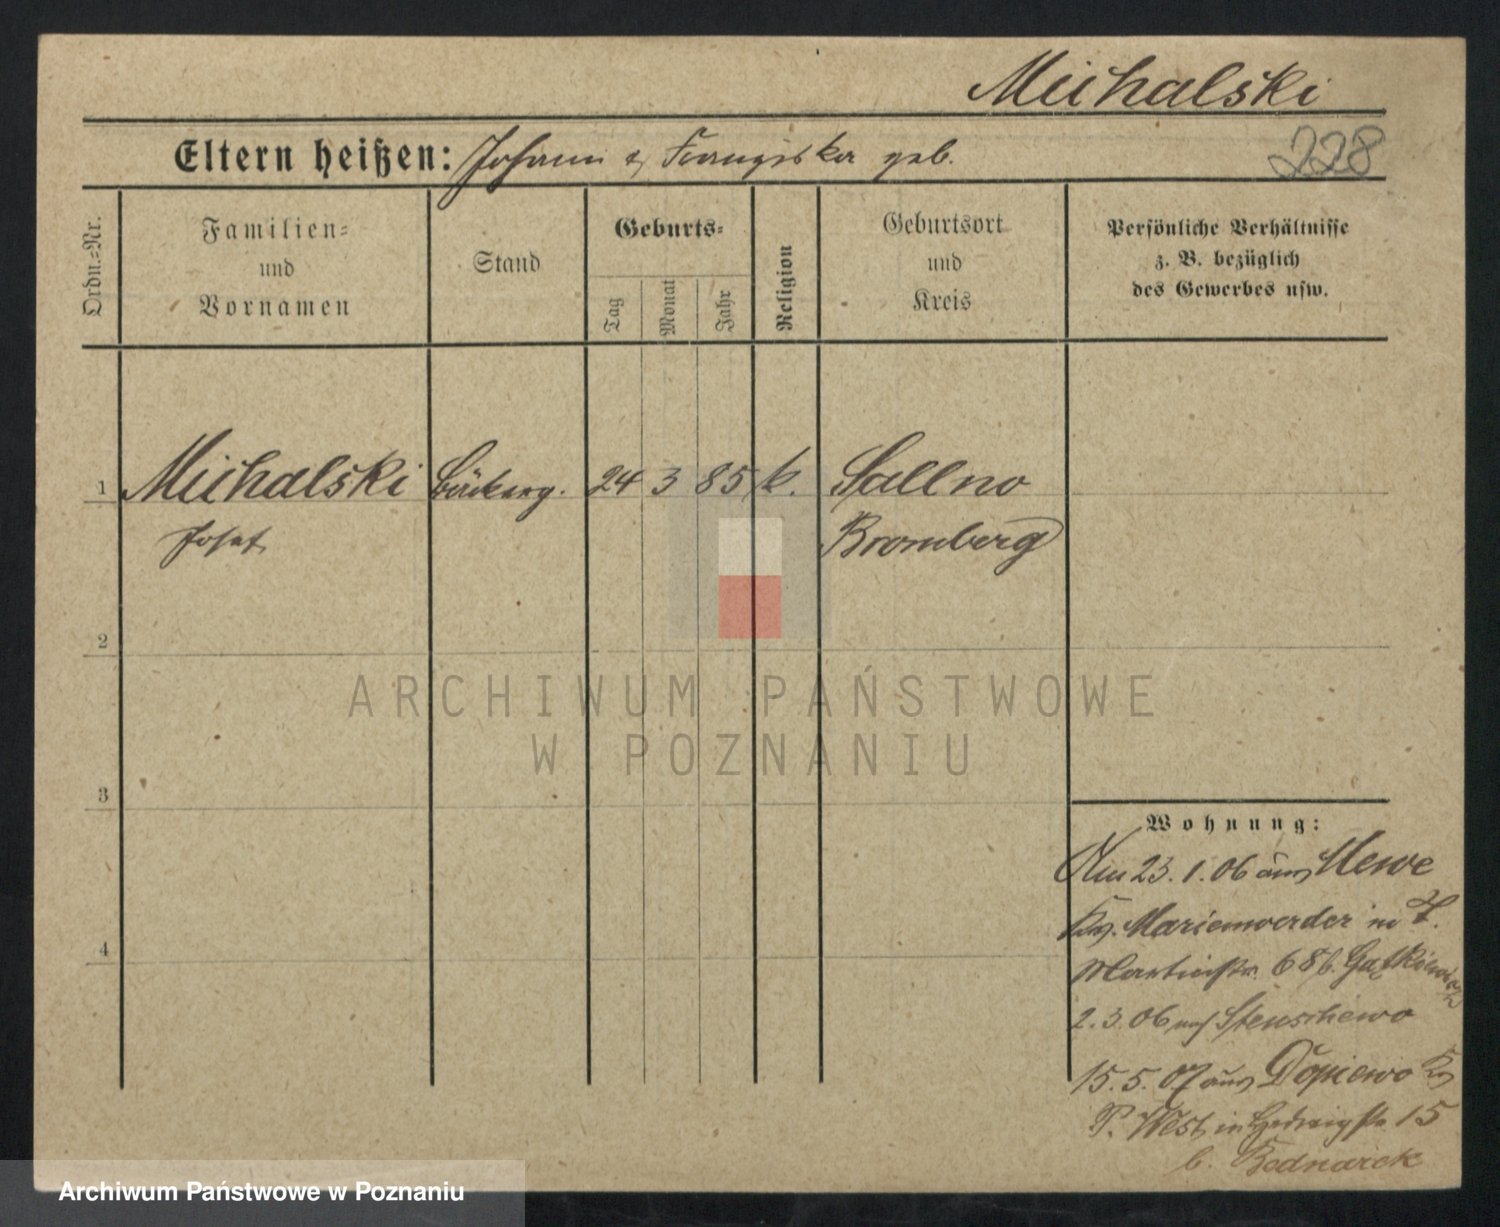 Michalski
228
Eltern heißen: Johann & Franziska geb.
Ordn.=Nr.
Familien=
und
Vornamen
Stand
Geburts=
Tag
Monat
Jahr
Religion
Geburtsort
und
Kreis
Persönliche Verhältnisse
z. B. bezüglich
des Gewerbes usw.
1
Michalski
Josef
Bäckerg.
24
3
85
k.
Sallno
Bromberg
2
3
4
Wohnung:
Am 23.1.06 aus Mewe
Krs. Marienwerder in
Martinstr. 68 b.
2.3.06 nach Stenschewo
15.5.07 aus Dopiewo Krs
P. West in Hedwigstr 15
b. Bednarek
ARCHIWUM PAŃSTWOWE
W POZNANIU
Archiwum Państwowe w Poznaniu